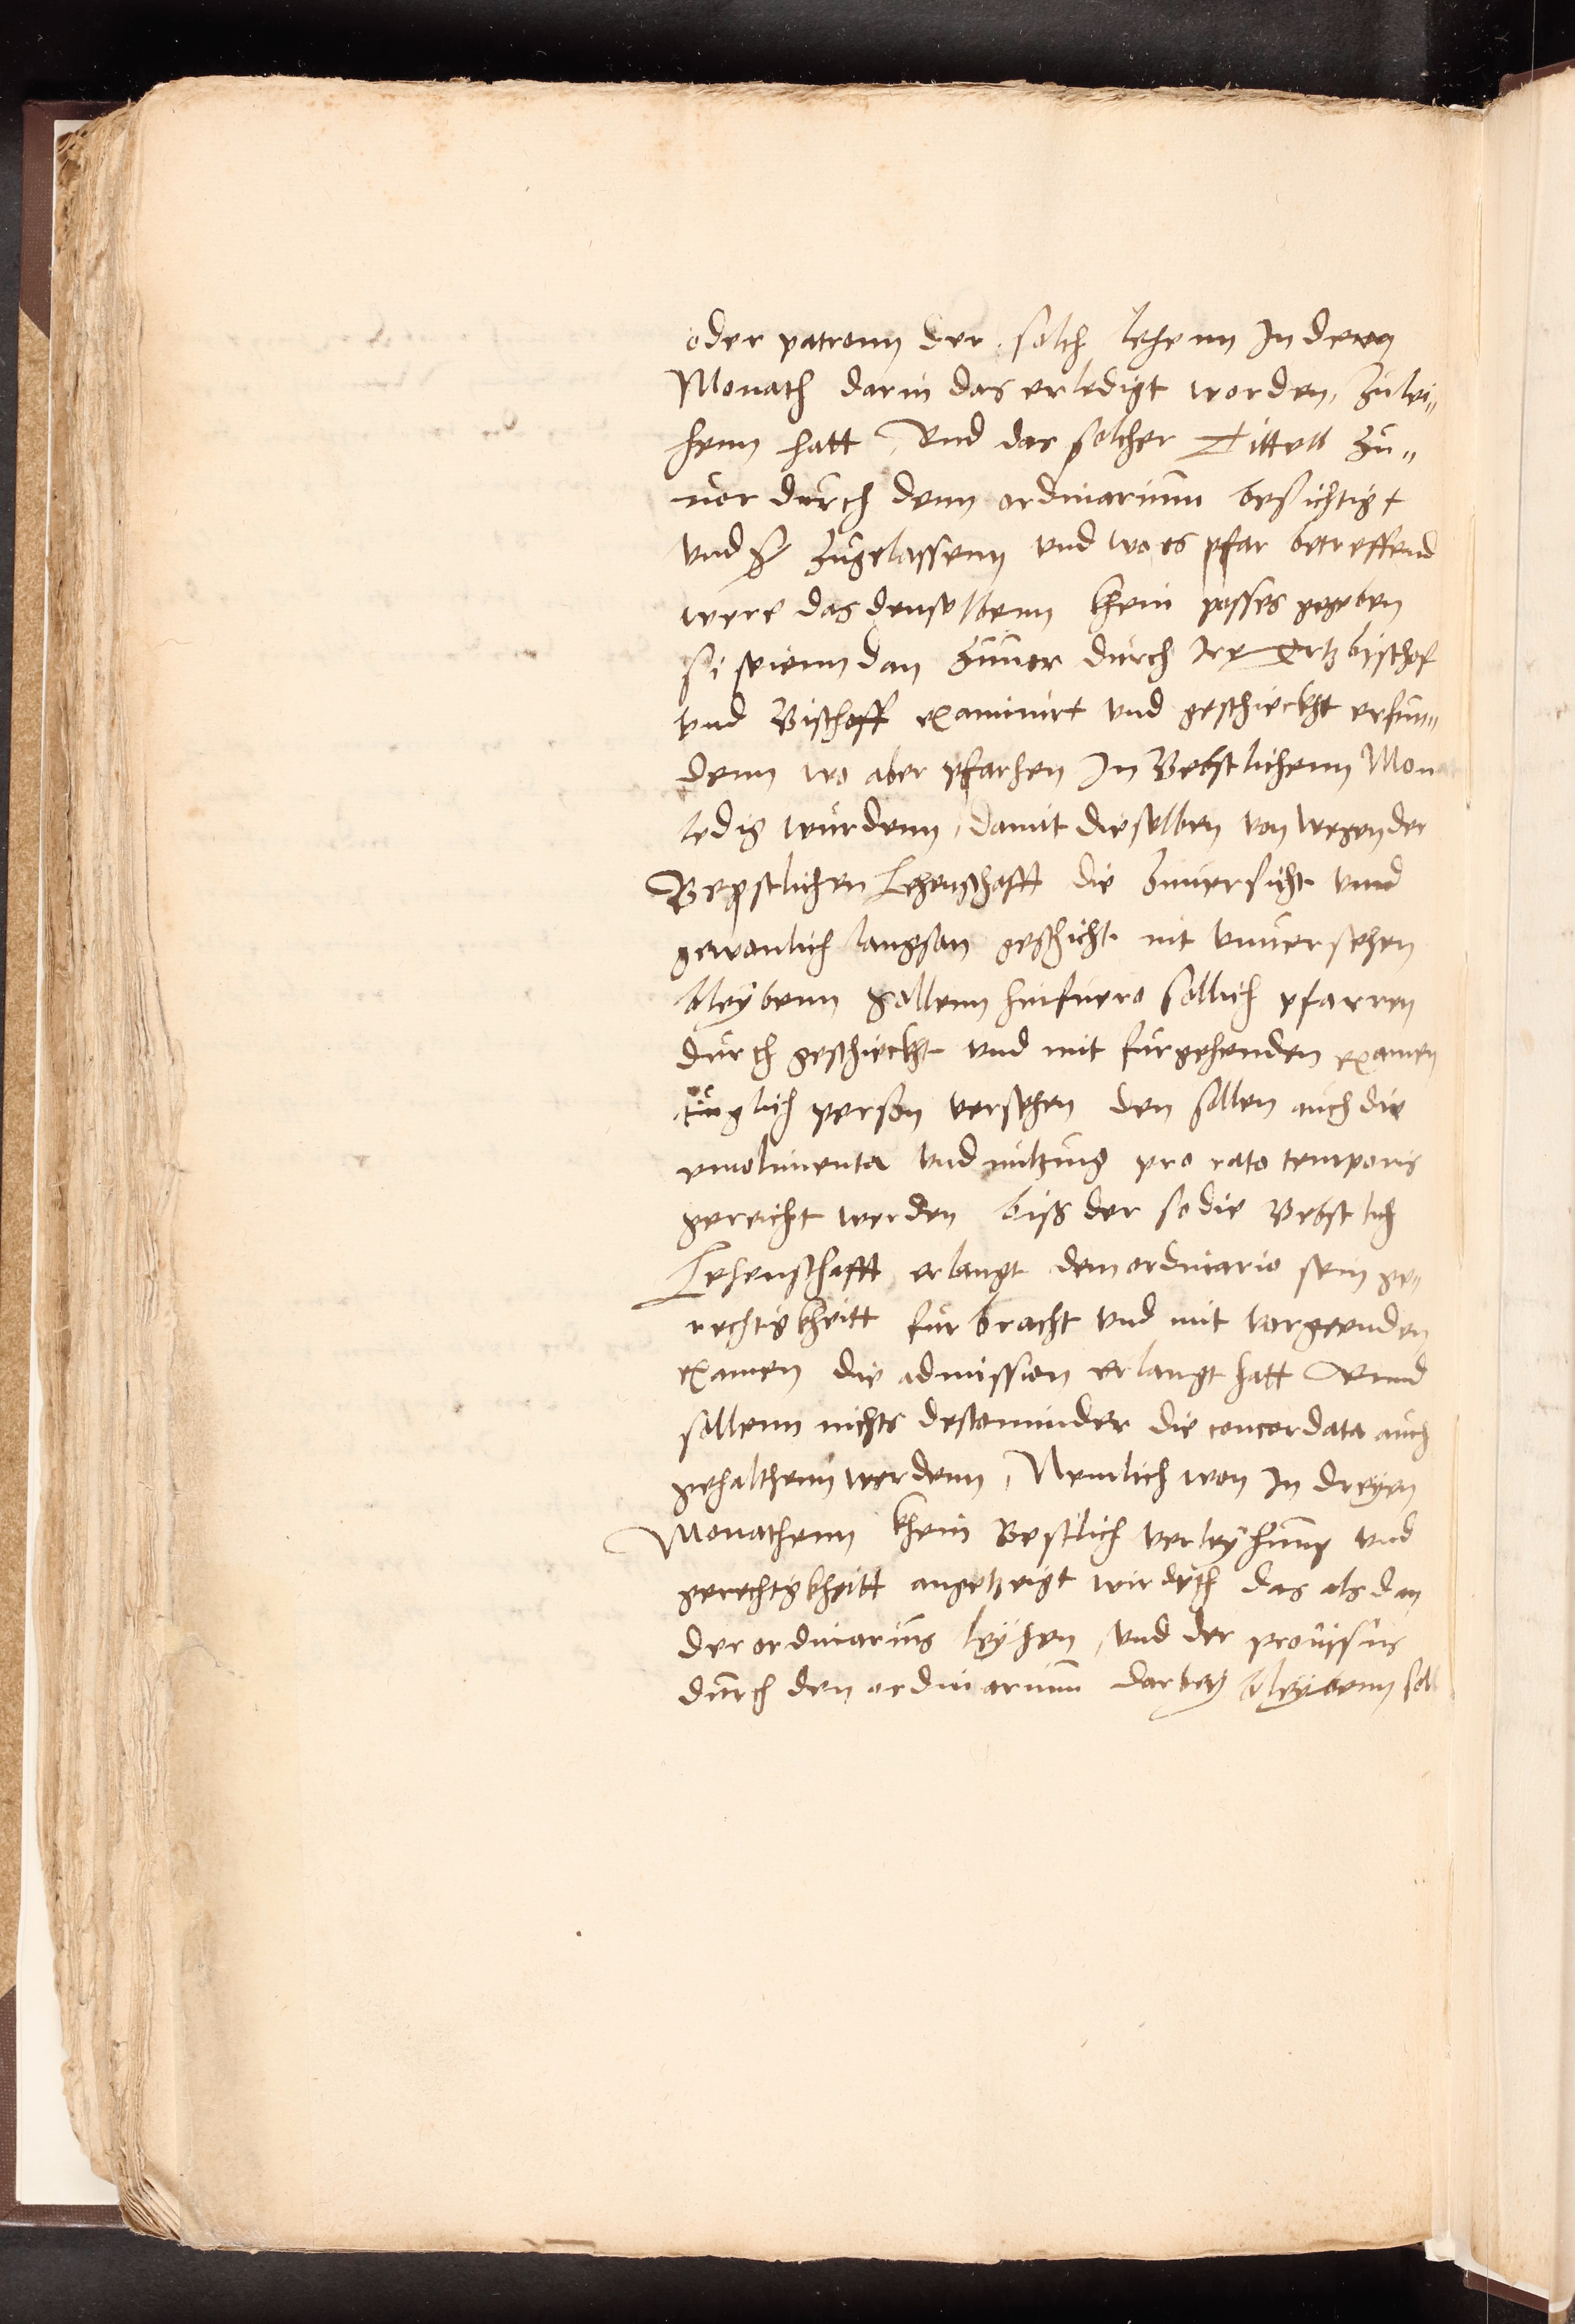 oder patronn der solch lehenn In dem
Monath darin das erledigt worden, zulei„
henn hatt, Und das solcher Tittell zu„
uor durch denn ordinarium besichtigt
vnd zugelassenn vnd wo es pfar betreffend
were das denselbenn khein posses gegeben
si seienn dan zuuor durch Ire Ertzbischof
vnd Bischoff examinirt vnd geschieckht erfun„
denn wo aber pfarhen In Bebstlichenn Mon
ledig wurdenn, damit dieselben von wegen der
Bepstlichen Lehenschafft die zuuersicht vnnd
gewonlich langsan geschicht nit vnuersehen
bleybenn sollenn hinfuero sollich pfarren
durch geschieckht vnd mit furgehenden examen
tuglich person versehen den sollen auch die
emolimenta vnd nutzung pro rato temporis
gereicht werden biß der so die Bebstlich
Lehenschafft erlangt dem ordinario sein ge„
rechtigkheitt furbracht vnd mit vorgeenden
examen die admission erlangt hatt Vnnd
sollenn nichts destominder die concordata auch
gehalthenn werdenn, Nemlich won In dreyen
Monathenn khein Bestlich verleyhung vnd
gerechtigkheitt angetzeigt wirdeth das alsdan
der ordinarius leyhen, vnd der prouissus
durch den ordinarium darbey bleybenn soll